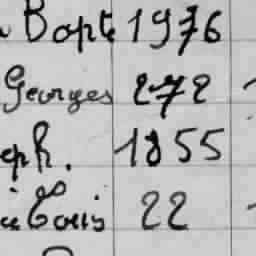 Bapte 1976
Georges 272
eph. 1855
Louis 22